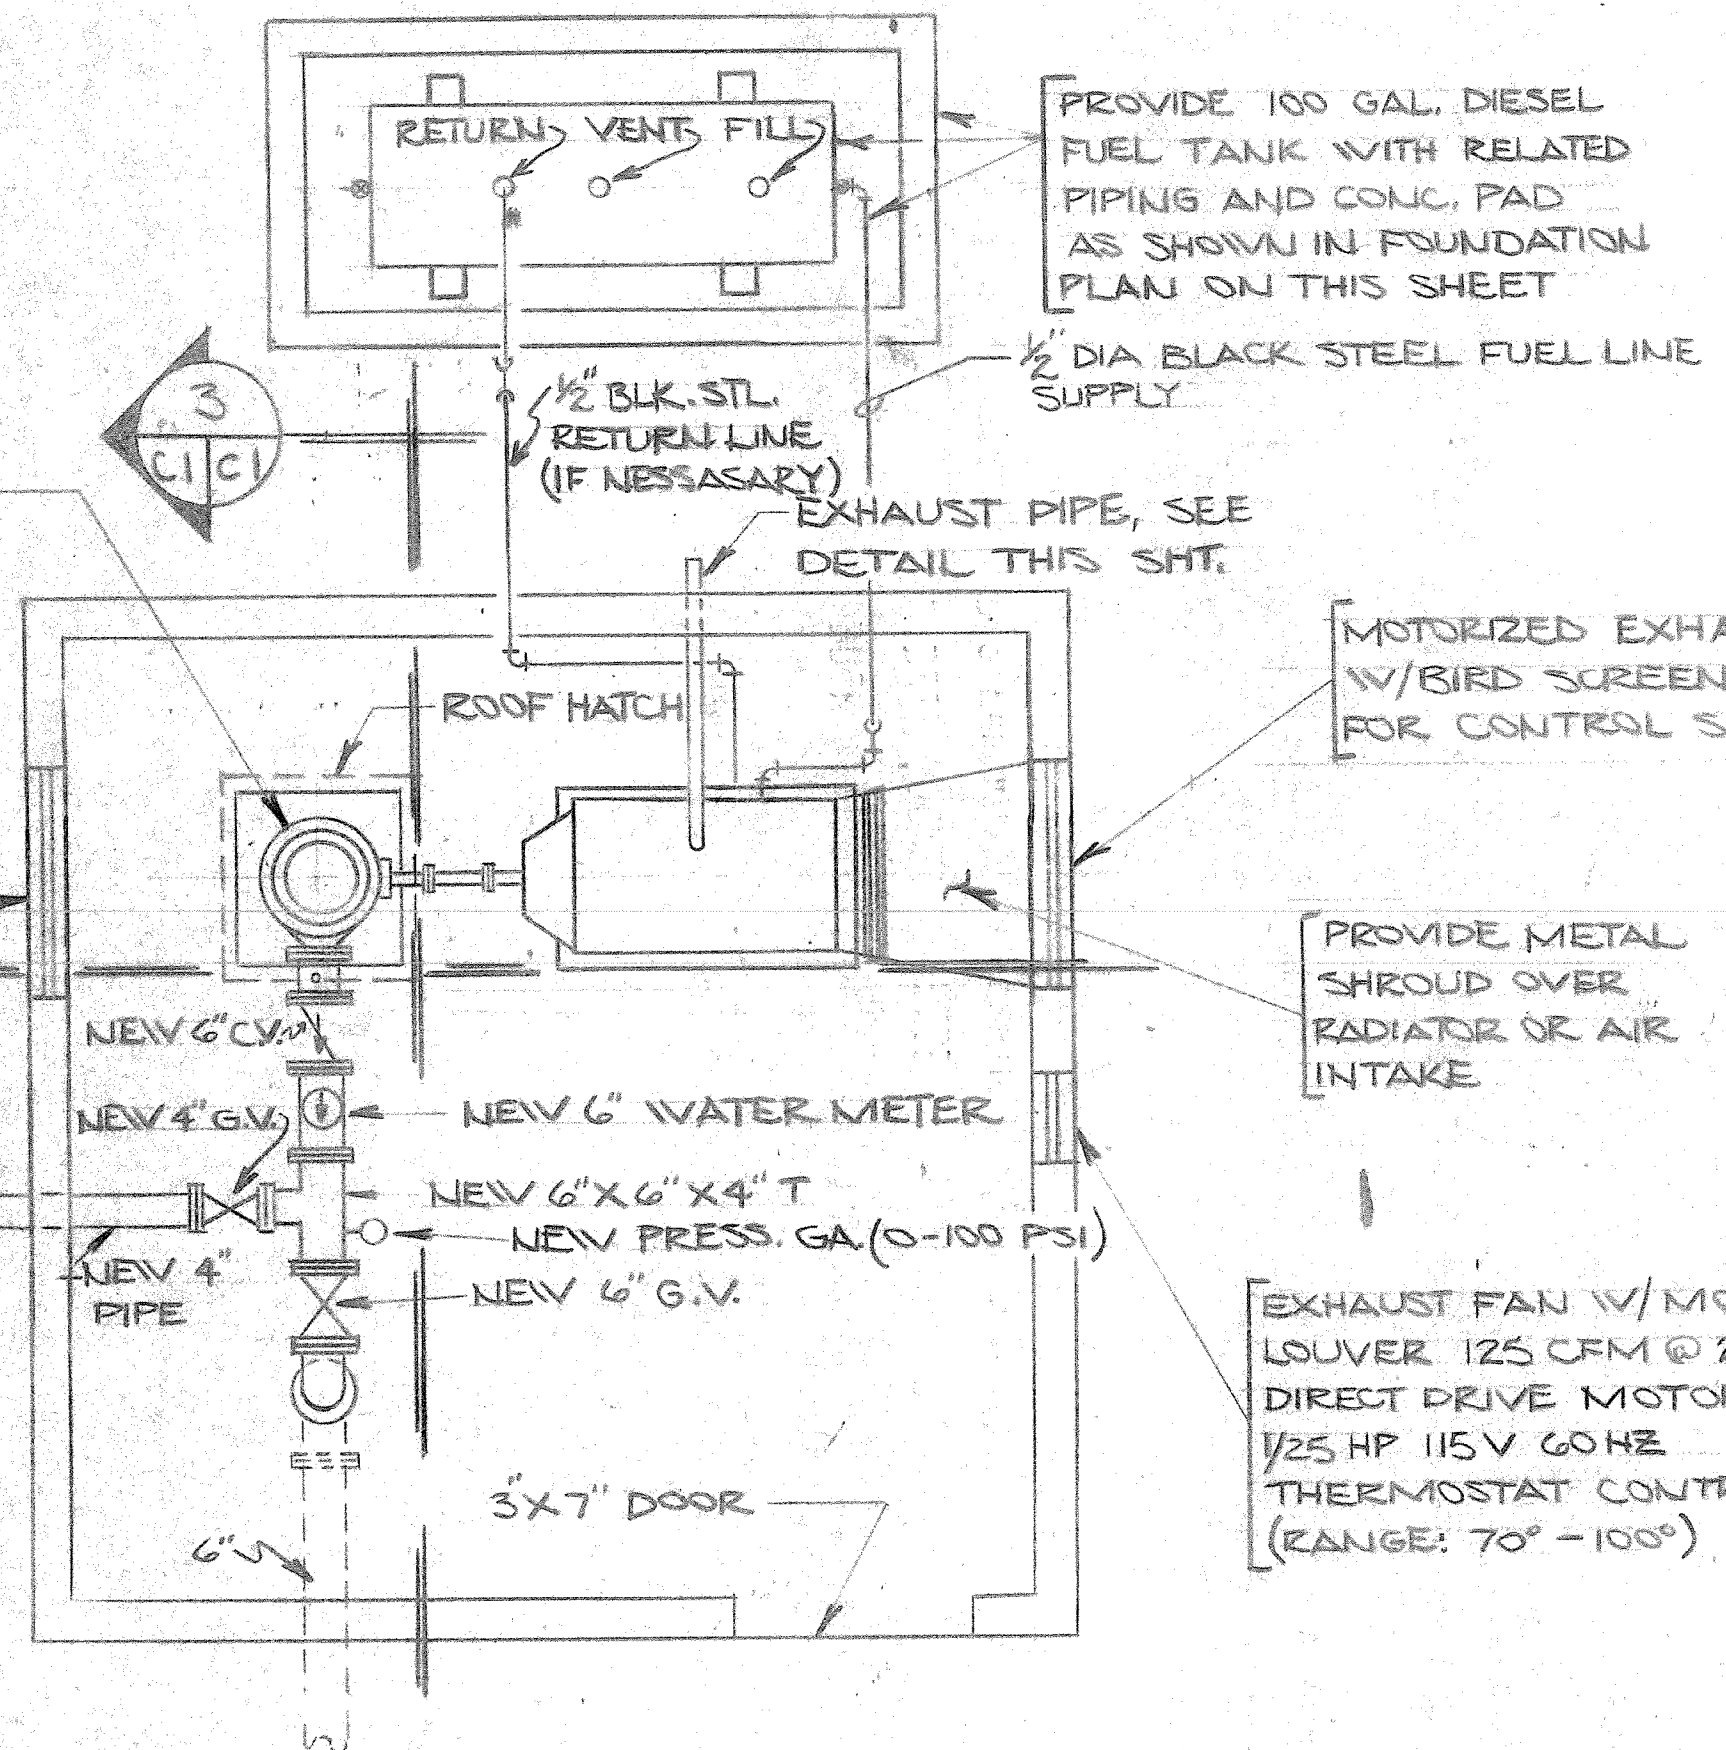 RETURN VENT FILL
PROVIDE 100 GAL. DIESEL
FUEL TANK WITH RELATED
PIPING AND CONC. PAD
AS SHOWN IN FOUNDATION
PLAN ON THIS SHEET
1/2" DIA BLACK STEEL FUEL LINE
SUPPLY
3
C1 C1
1/2" BLK. STL.
RETURN LINE
(IF NESSASARY)
EXHAUST PIPE, SEE
DETAIL THIS SHT.
MOTORIZED EXHA
W/BIRD SCREEN
FOR CONTROL S
ROOF HATCH
PROVIDE METAL
SHROUD OVER
RADIATOR OR AIR
INTAKE
NEW 6" C.V.
NEW 4" G.V.
NEW 6" WATER METER
NEW 6"X6"X4" T
NEW PRESS. GA. (0-100 PSI)
NEW 4"
PIPE
NEW 6" G.V.
EXHAUST FAN W/ MO
LOUVER 125 CFM @
DIRECT DRIVE MOTO
1/25 HP 115V 60HZ
THERMOSTAT CONT
(RANGE: 70° - 100°)
3"X7" DOOR
6"